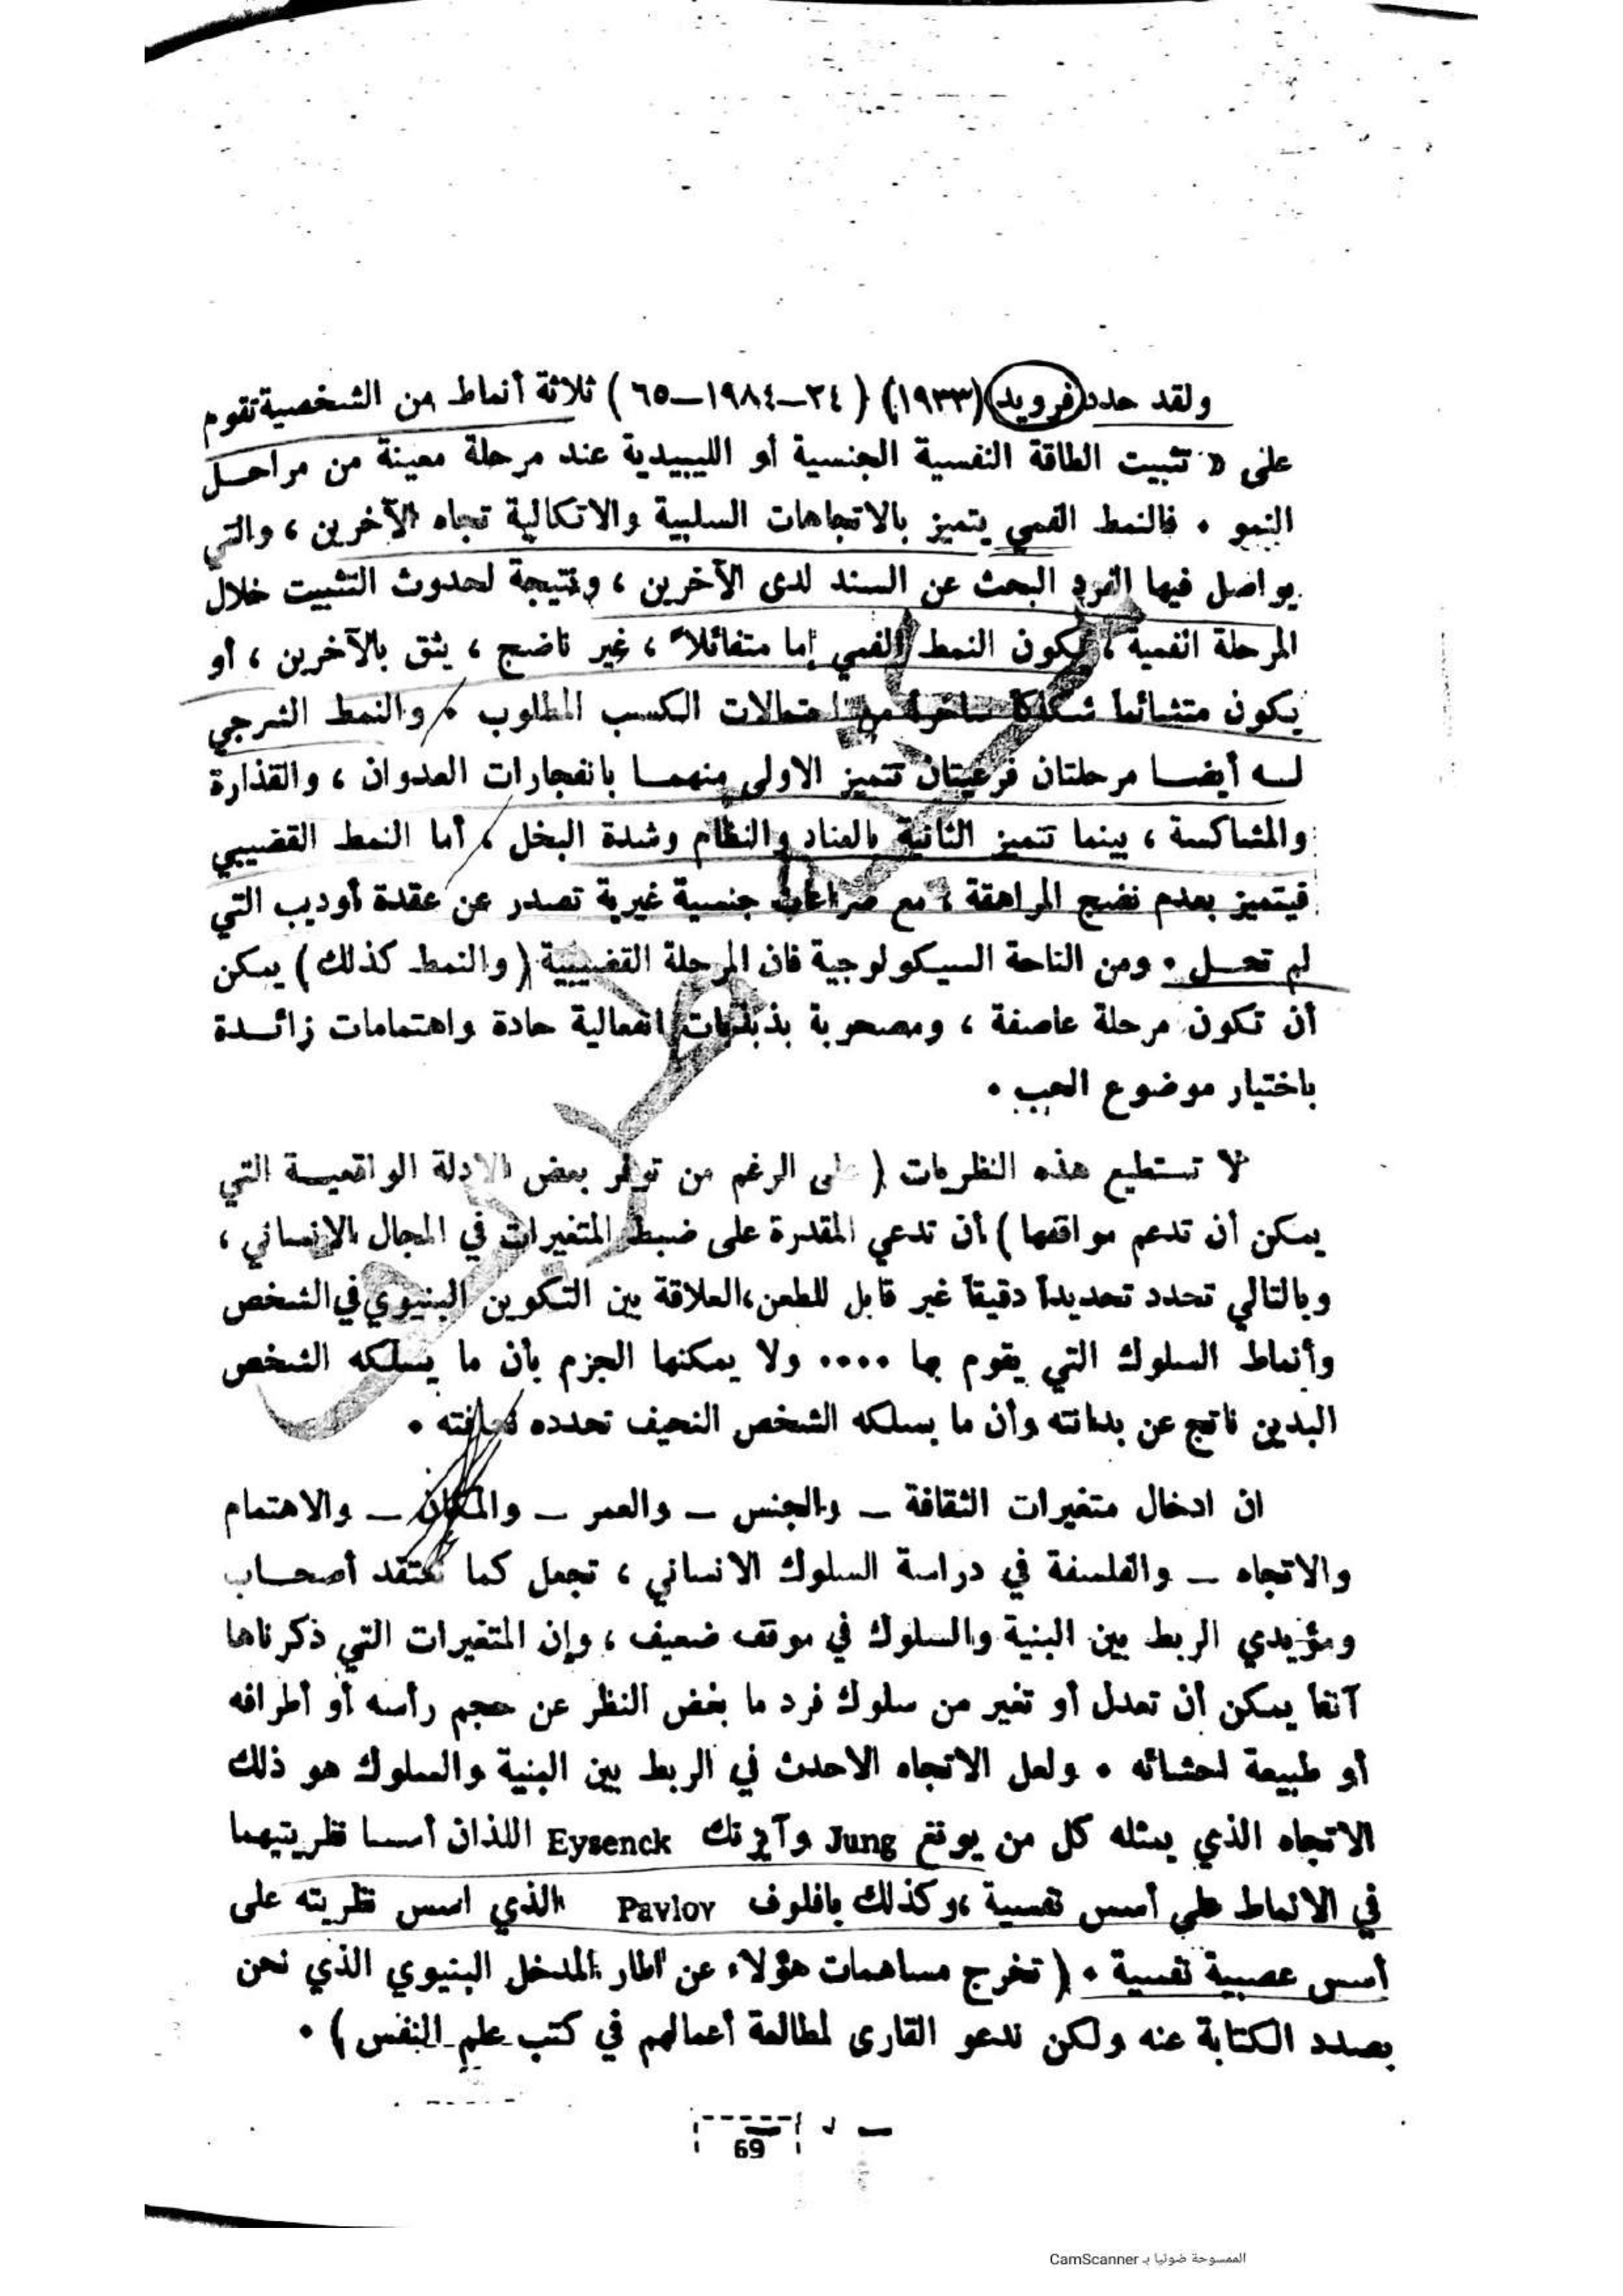 ولقد حدد فرويد (١٩٣٣) ( ٢٤–١٩٨٤–٦٥ ) ثلاثة أنماط من الشخصية تقوم
على « تثبيت الطاقة النفسية الجنسية أو الليبيدية عند مرحلة معينة من مراحـل
النمو ٠ فالنمط الفمي يتميز بالاتجاهات السلبية والاتكالية تجاه الآخرين ، والتي
يواصل فيها الفرد البحث عن السند لدى الآخرين ، ونتيجة لحدوث التثبيت خلال
المرحلة الفمية ، يكون النمط الفمي إما متفائلاً ، غير ناضج ، يثق بالآخرين ، أو
يكون متشائماً شكاكاً ساخراً من احتمالات الكسب المطلوب ٠ والنمط الشرجي
لـه أيضـا مرحلتان فرعيتان تتميز الاولى منهمـا بانفجارات العدوان ، والقذارة
والمشاكسة ، بينما تتميز الثانية بالعناد والنظام وشدة البخل ، أما النمط القضيبي
فيتميز بعدم نضج المراهقة ، مع صراعات جنسية غيرية تصدر عن عقدة أوديب التي
لم تحـل ٠ ومن الناحة السيكولوجية فان المرحلة القضيبية ( والنمط كذلك ) يمكن
أن تكون مرحلة عاصفة ، ومصحوبة بذبذبات انفعالية حادة واهتمامات زائـدة
باختيار موضوع الحب ٠
لا تستطيع هذه النظريات ( على الرغم من توفر بعض الادلة الواقعيـة التي
يمكن أن تدعم مواقفها ) أن تدعي المقدرة على ضبط المتغيرات في المجال الانساني ،
وبالتالي تحدد تحديداً دقيقاً غير قابل للطعن، العلاقة بين التكوين البنيوي في الشخص
وأنماط السلوك التي يقوم بها ٠٠٠٠ ولا يمكنها الجزم بأن ما يسلكه الشخص
البدين ناتج عن بدانته وأن ما يسلكه الشخص النحيف تحدده نحافته ٠
ان ادخال متغيرات الثقافة – والجنس – والعمر – والمكان – والاهتمام
والاتجاه – والفلسفة في دراسة السلوك الانساني ، تجعل كما نعتقد أصحـاب
ومؤيدي الربط بين البنية والسلوك في موقف ضعيف ، وإن المتغيرات التي ذكرناها
آنفاً يمكن أن تعدل أو تغير من سلوك فرد ما بغض النظر عن حجم رأسه أو أطرافه
أو طبيعة احشائه ٠ ولعل الاتجاه الاحدث في الربط بين البنية والسلوك هو ذلك
الاتجاه الذي يمثله كل من يونغ Jung وآيزنك Eysenck اللذان أسسا نظريتيهما
في الانماط على أسس نفسية ، وكذلك بافلوف Pavlov الذي اسس نظريته على
أسس عصبية نفسية ٠ ( تخرج مساهمات هؤلاء عن اطار المدخل البنيوي الذي نحن
بصدد الكتابة عنه ولكن ندعو القارىء لمطالعة أعمالهم في كتب علم النفس ) ٠
69
الممسوحة ضوئيا بـ CamScanner